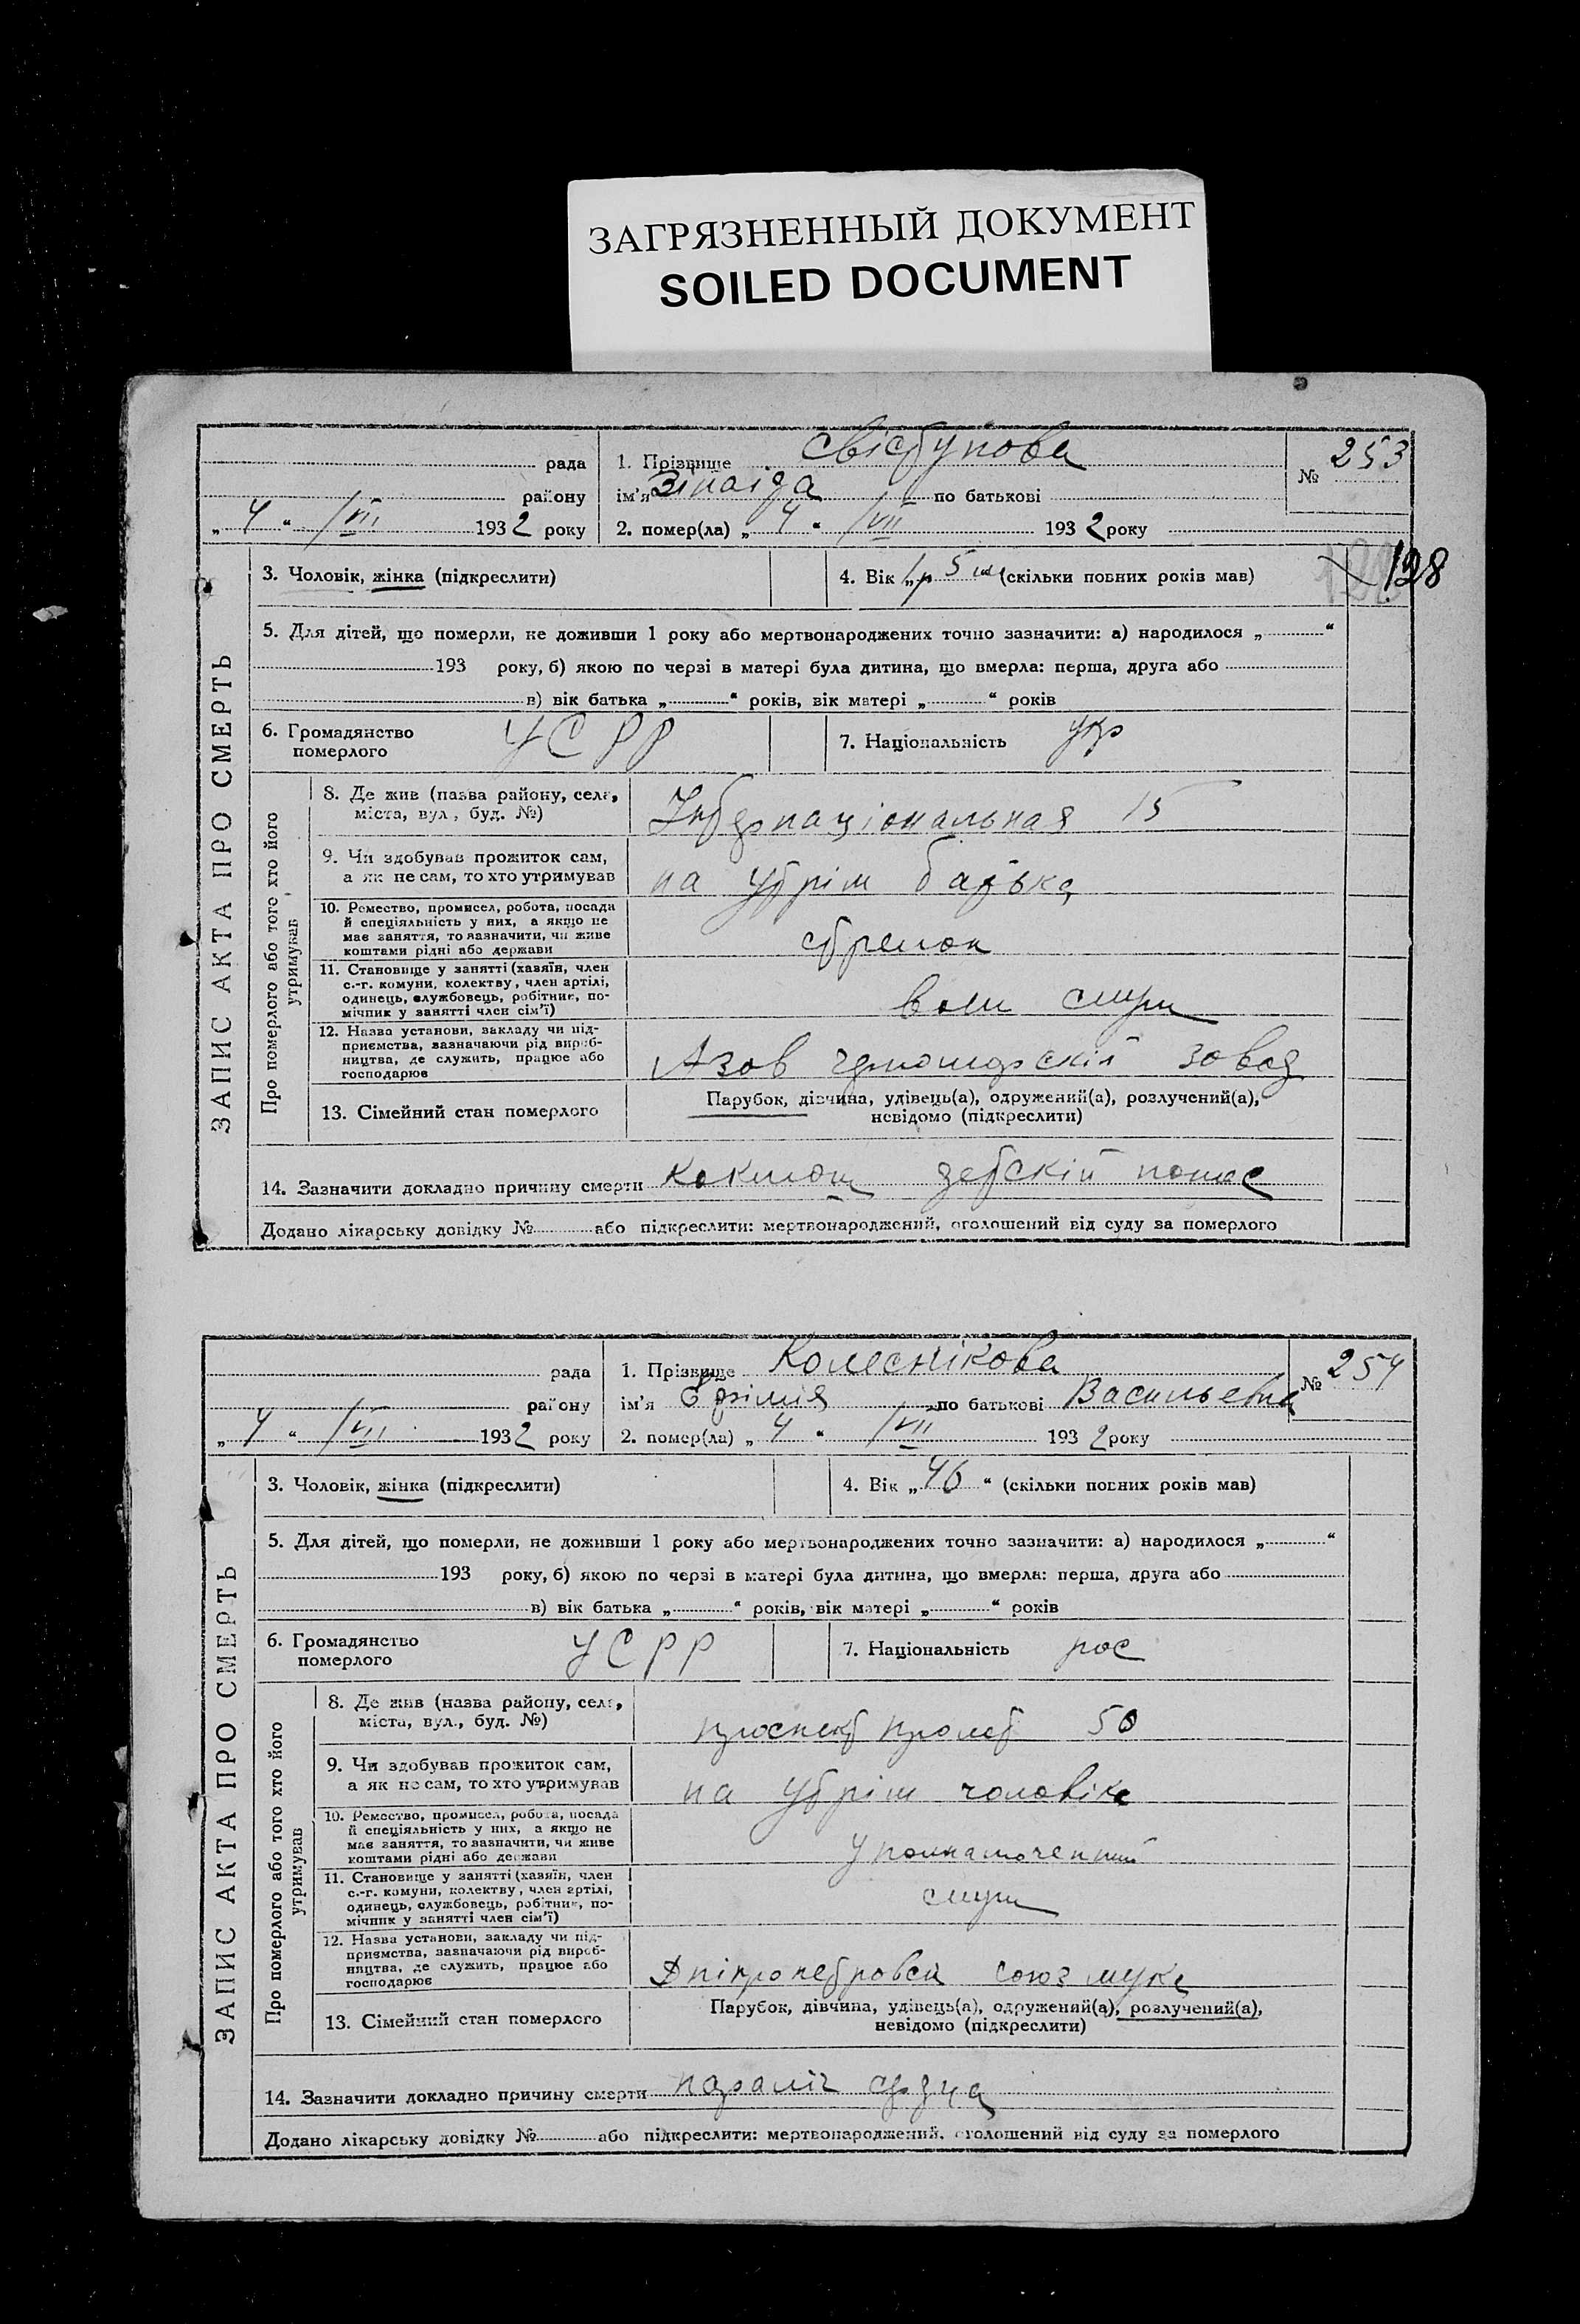 ЗАГРЯЗНЕННЫЙ ДОКУМЕНТ
SOILED DOCUMENT
рада
району
„ 4 “ /VII 1932 року
1. Прізвище Свістунова
ім'я Зінаіда по батькові
2. помер(ла) „ 4 “ /VII 1932 року
№ 253
128
ЗАПИС АКТА ПРО СМЕРТЬ
3. Чоловік, жінка (підкреслити)
4. Вік „1р 5 м (скільки повних років мав)
5. Для дітей, що померли, не доживши 1 року або мертвонароджених точно зазначити: а) народилося „ “
193 року, б) якою по черзі в матері була дитина, що вмерла: перша, друга або
в) вік батька „ “ років, вік матері „ “ років
6. Громадянство померлого УСРР
7. Національність укр
Про померлого або того хто його утримував
8. Де жив (назва району, села, міста, вул., буд. №) Інтернаціональная 15
9. Чи здобував прожиток сам, а як не сам, то хто утримував на утрім батька
10. Ремество, промисел, робота, посада й спеціяльність у них, а якщо не має заняття, то зазначити, чи живе коштами рідні або держави стрелок
11. Становище у занятті (хазяїн, член с.-г. комуни, колективу, член артілі, одинець, службовець, робітник, помічник у занятті член сім'ї)
12. Назва установи, закладу чи підприємства, зазначаючи рід виробництва, де служить, працює або господарює Азов черноморскій завод
13. Сімейний стан померлого
Парубок, дівчина, удівець(а), одружений(а), розлучений(а),
невідомо (підкреслити)
14. Зазначити докладно причину смерти коклюш детскій понос
Додано лікарську довідку № або підкреслити: мертвонароджений, оголошений від суду за померлого
рада
району
„ 4 “ /VII 1932 року
1. Прізвище Колеснікова
ім'я по батькові Васильевна
2. помер(ла) „ 4 “ /VII 1932 року
№ 254
ЗАПИС АКТА ПРО СМЕРТЬ
3. Чоловік, жінка (підкреслити)
4. Вік „ 46 “ (скільки повних років мав)
5. Для дітей, що померли, не доживши 1 року або мертвонароджених точно зазначити: а) народилося „ “
193 року, б) якою по черзі в матері була дитина, що вмерла: перша, друга або
в) вік батька „ “ років, вік матері „ “ років
6. Громадянство померлого УСРР
7. Національність рос
Про померлого або того хто його утримував
8. Де жив (назва району, села, міста, вул., буд. №) проспект пролет 50
9. Чи здобував прожиток сам, а як не сам, то хто утримував на утрім чоловіка
10. Ремество, промисел, робота, посада й спеціяльність у них, а якщо не має заняття, то зазначити, чи живе коштами рідні або держави
11. Становище у занятті (хазяїн, член с.-г. комуни, колективу, член артілі, одинець, службовець, робітник, помічник у занятті член сім'ї) служ
12. Назва установи, закладу чи підприємства, зазначаючи рід виробництва, де служить, працює або господарює союз мука
13. Сімейний стан померлого
Парубок, дівчина, удівець(а), одружений(а), розлучений(а),
невідомо (підкреслити)
14. Зазначити докладно причину смерти параліч сердца
Додано лікарську довідку № або підкреслити: мертвонароджений, оголошений від суду за померлого